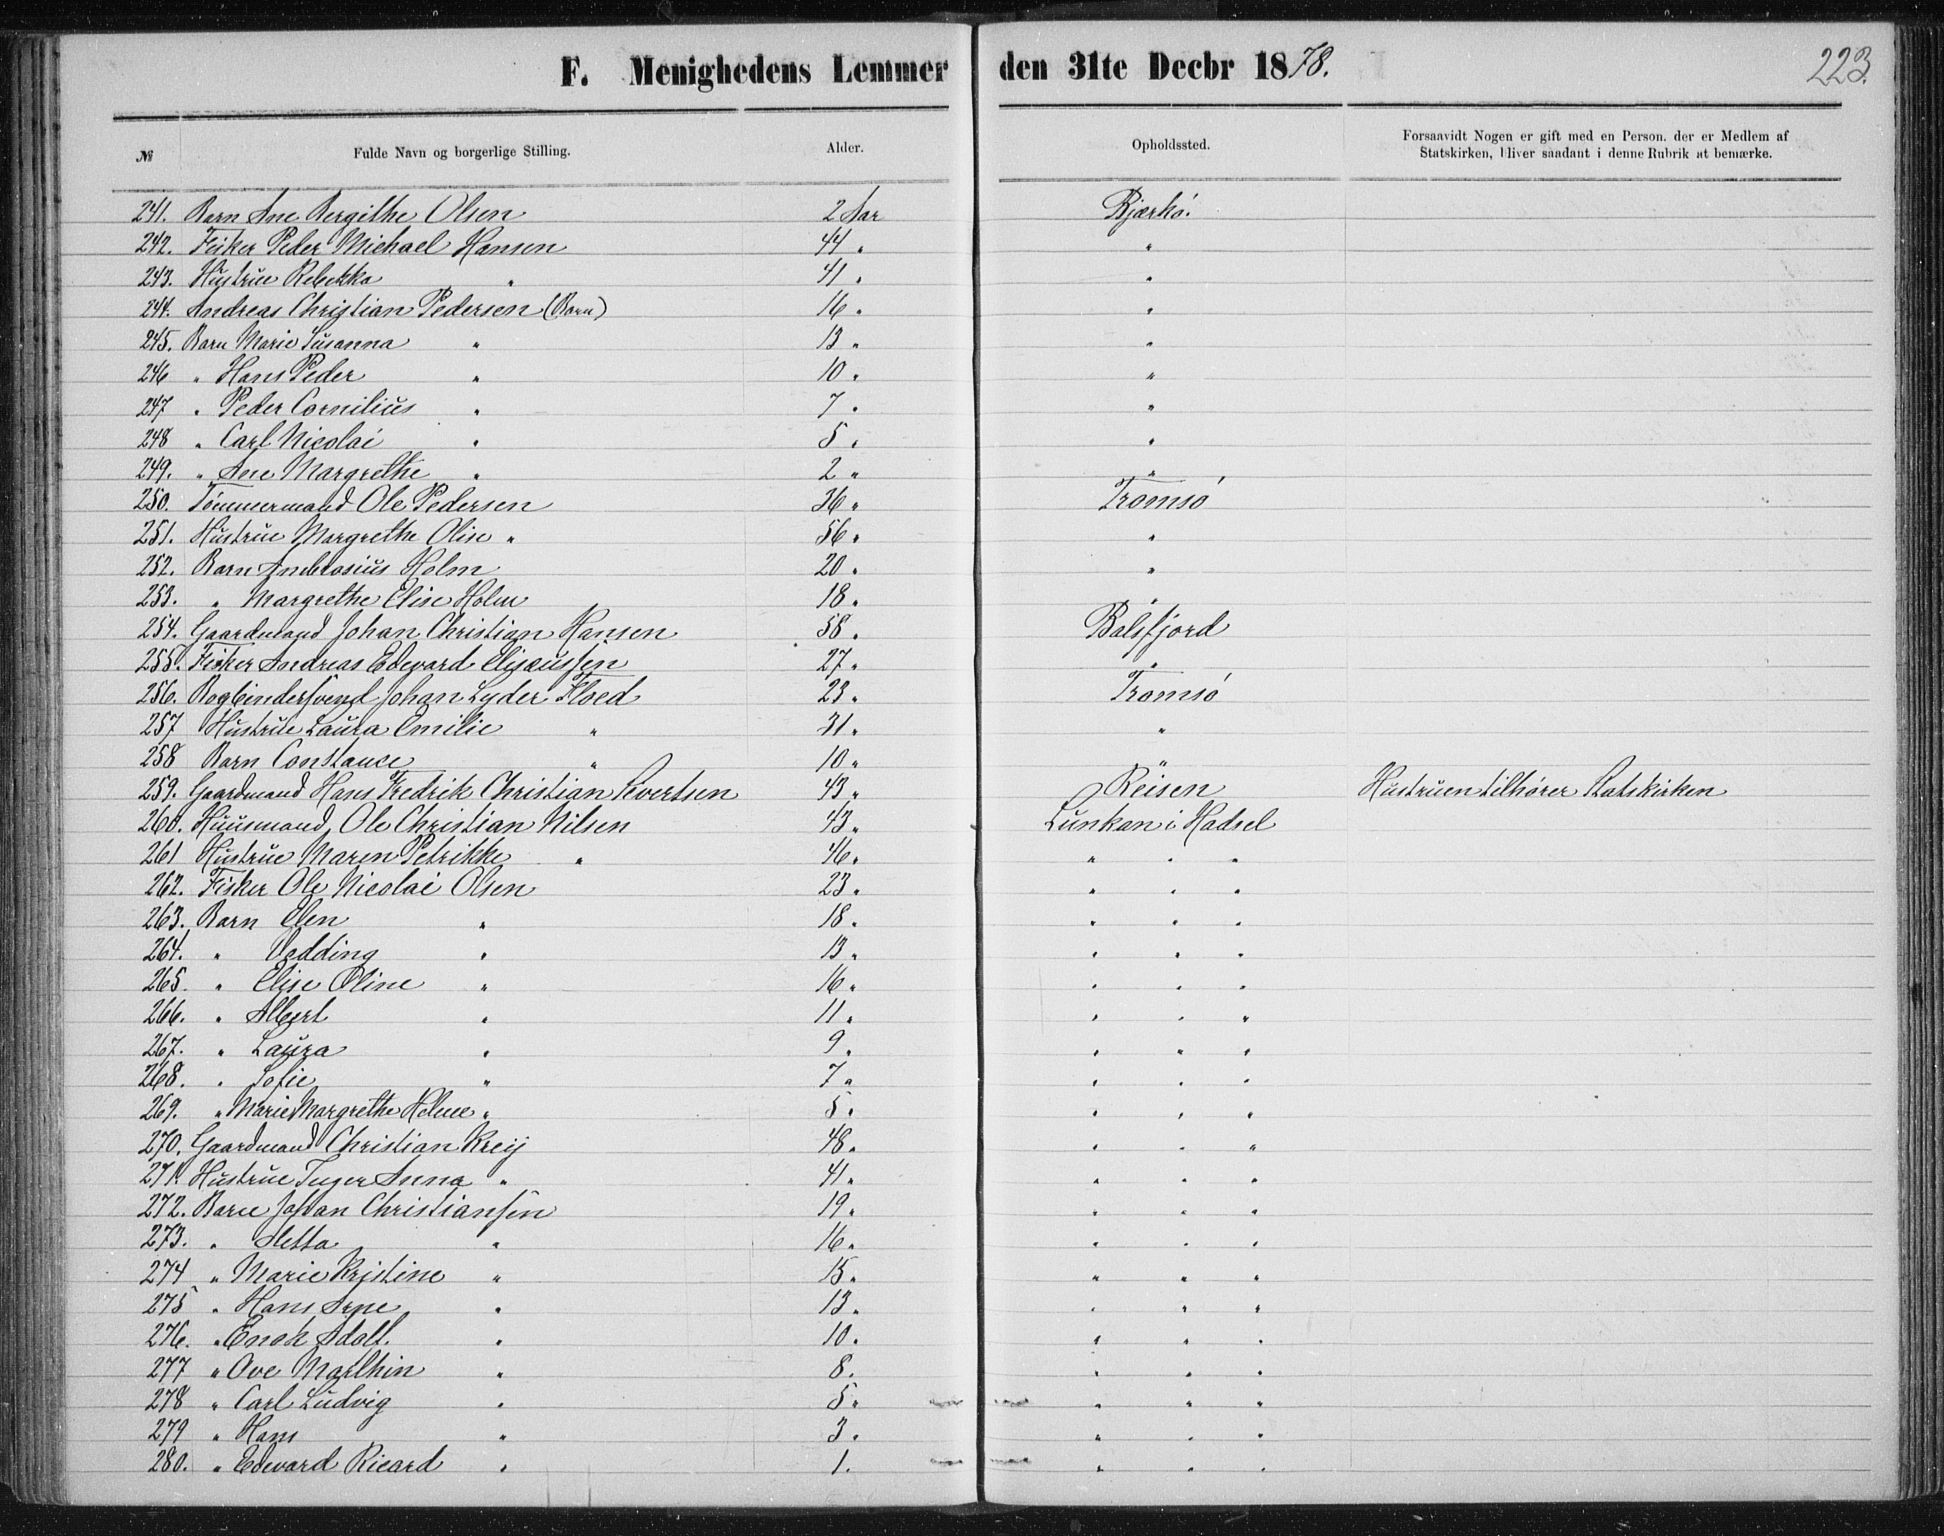 F. Menighedens Lemmer den 31te Decbr 1878. 223.
№ Fulde Navn og borgerlige Stilling. Alder. Opholdssted. Forsaavidt Nogen er gift med en Person, der er Medlem af
Statskirken, bliver saadant i denne Rubrik at bemærke.
241. Barn Ane Bergithe Olsen 2 Aar Bjærkö.
242. Fisker Peder Michael Hansen 44 " "
243. Hustrue Rebekka " 41 " "
244. Andreas Christian Pedersen (Barn) 16 " "
245. Barn Marie Susanna " 13 " "
246 " Hans Peder " 10 " "
247 " Peder Cornilius " 7 " "
248 " Carl Nicolai " 5 " "
249. " Ane Margrethe " 2 " "
250. Tømmermand Ole Pedersen 36 " Tromsö
251. Hustrue Margrethe Oline " 56 " "
252. Barn Ambrosius Holm 20 " "
253. " Margrethe Elise Holm 18 " "
254. Gaardmand Johan Christian Hansen 58 " Balsfjord
255. Fisker Andreas Edevard Eliseussen 27 " "
256. Bogbindersvend Johan Lyder Floed 23 " Tromsö
257 Hustrue Laura Emilie " 31 " "
258 Barn Constance " 10 " "
259. Gaardmand Hans Fredrik Christian Sivertsen 43 " Reisen Hustruen tilhører Statskirken
260. Huusmand Ole Christian Nilsen 43 " Lunkan i Hadsel
261 Hustrue Maren Petrikke " 46 " " " "
262. Fisker Ole Nicolai Olsen 23 " " " "
263. Barn Elen " 18 " " " "
264. " Vedding " 13 " " " "
265. " Elise Oline " 16 " " " "
266. " Albert " 11 " " " "
267. " Laura " 9 " " " "
268. " Sofie " 7 " " " "
269. " Marie Margrethe Helene " 5 " " " "
270. Gaardmand Christian Kreij 48 " " " "
271. Hustrue Inger Anna " 41 " " " "
272. Barn Johan Christiansen 19 " " " "
273. " Hetta " 16 " " " "
274 " Marie Kristine " 15 " " " "
275 " Hans Arne " 13 " " " "
276. " Enok Adolf. " 10 " " " "
277 " Ove Marthin " 8 " " " "
278 " Carl Ludvig " 5 " " " "
279 " Hans " 3 " " " "
280. " Edevard Ricard " 1. " " "